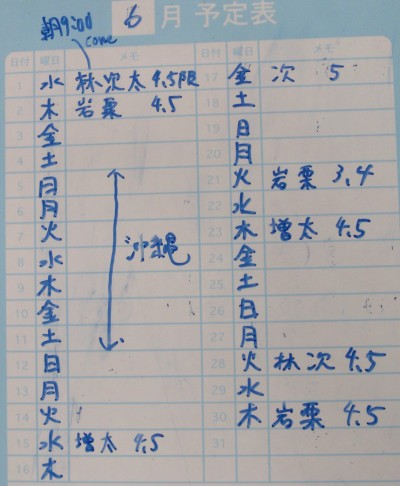 6月 予定表
朝9:00
come
日付 曜日 メモ
1 水 林次太 4.5限
2 木 岩栗 4.5
3 金
4 土
5 日
6 月
7 火
沖縄
8 水
9 木
10 金
11 土
12 日
13 月
14 火
15 水 増太 4.5
16 木
日付 曜日 メモ
17 金 次 5
18 土
19 日
20 月
21 火 岩栗 3,4
22 水
23 木 増太 4.5
24 金
25 土
26 日
27 月
28 火 林次 4.5
29 水
30 木 岩栗 4.5
31